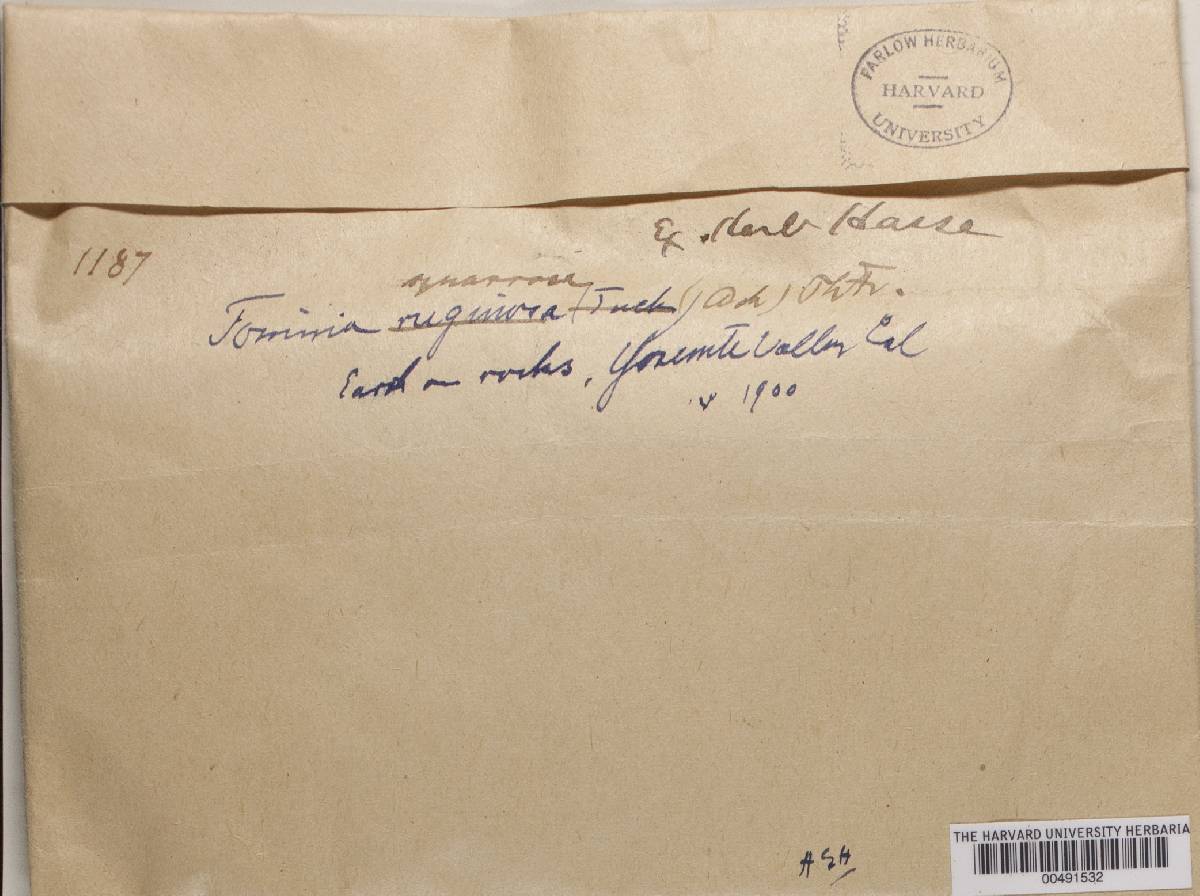 FARLOW HERBARIUM
HARVARD
UNIVERSITY
Ex. Herb Hasse
1187
squarrosa
Toninia ruginosa (Tuck) (Ach)
Earth on rocks, Yosemite Valley Cal
v 1900
AEH
THE HARVARD UNIVERSITY HERBARIA
00491532